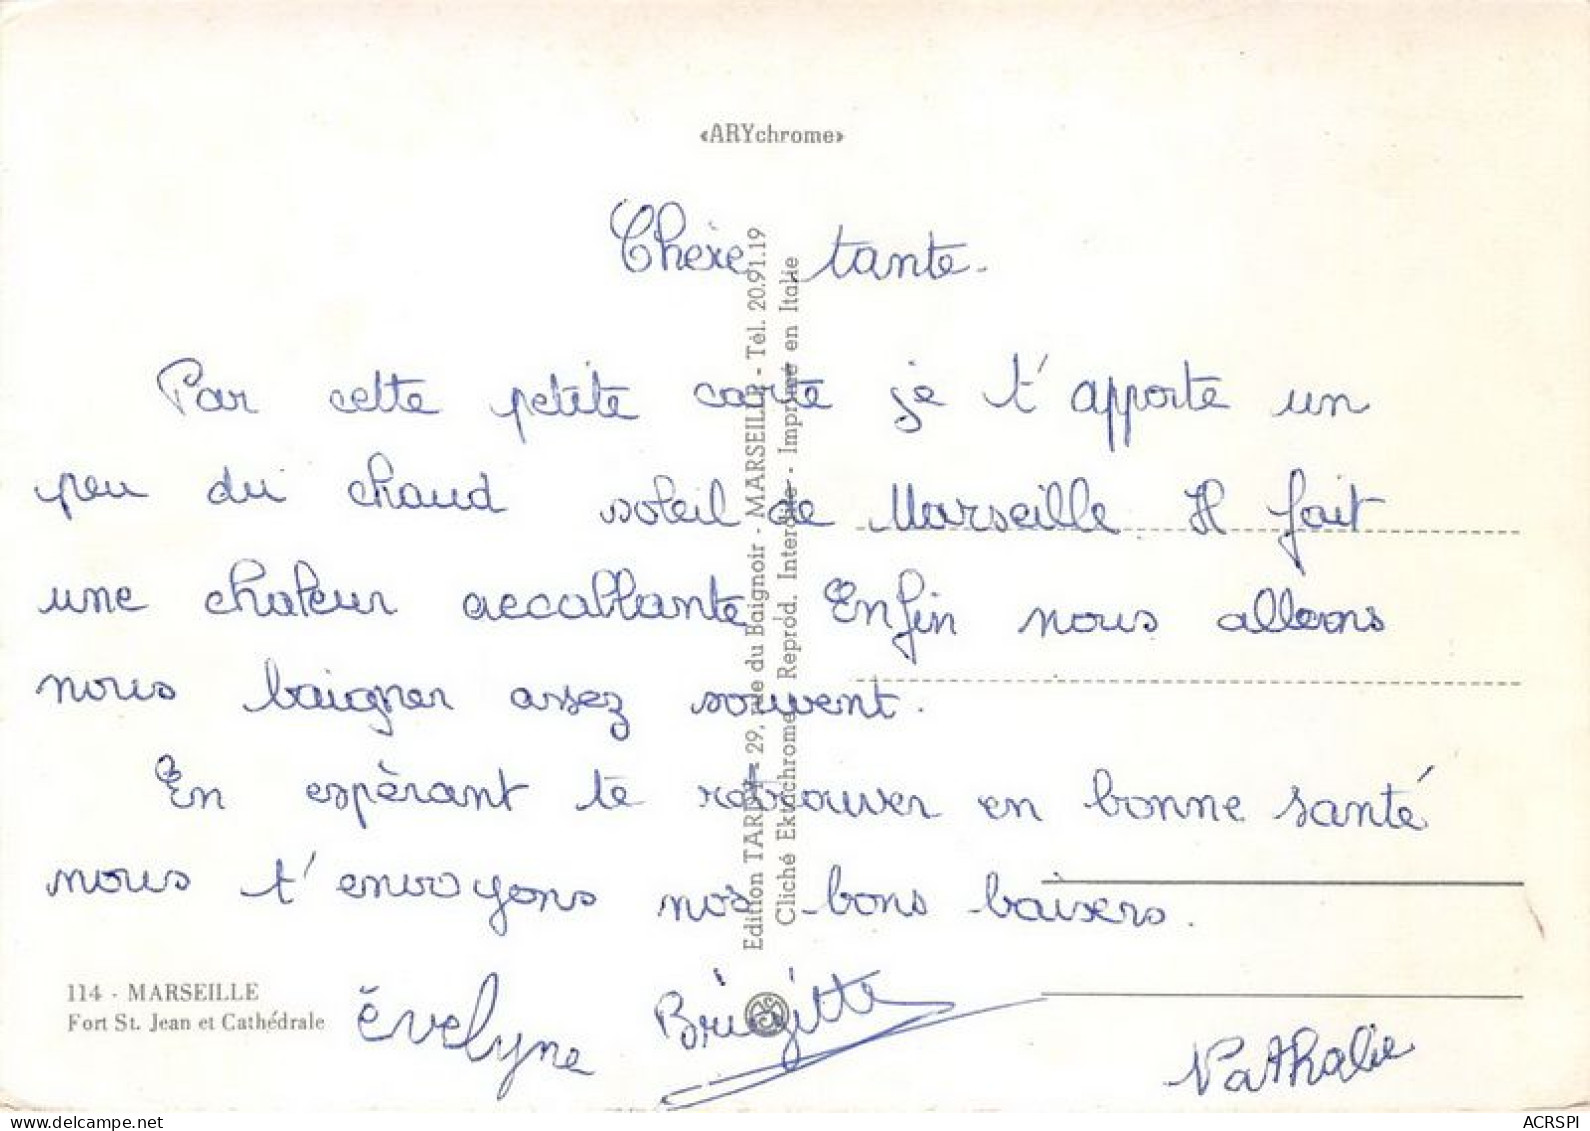 «ARYchrome»
Chère tante.
Par cette petite carte je t'apporte un
peu du chaud soleil de Marseille. Il fait
une chaleur accablante Enfin nous allons
nous baigner assez souvent.
En espèrant te retrouver en bonne santé
nous t'envoyons nos bons baisers.
Évelyne Brigitte
Nathalie
114 - MARSEILLE
Fort St. Jean et Cathédrale
Edition TARDY - 29, rue du Baignoir - MARSEILLE - Tél. 20.91.19
Cliché Ektachrome - Reprod. Interdite - Imprimé en Italie
delcampe.net
ACRSPI